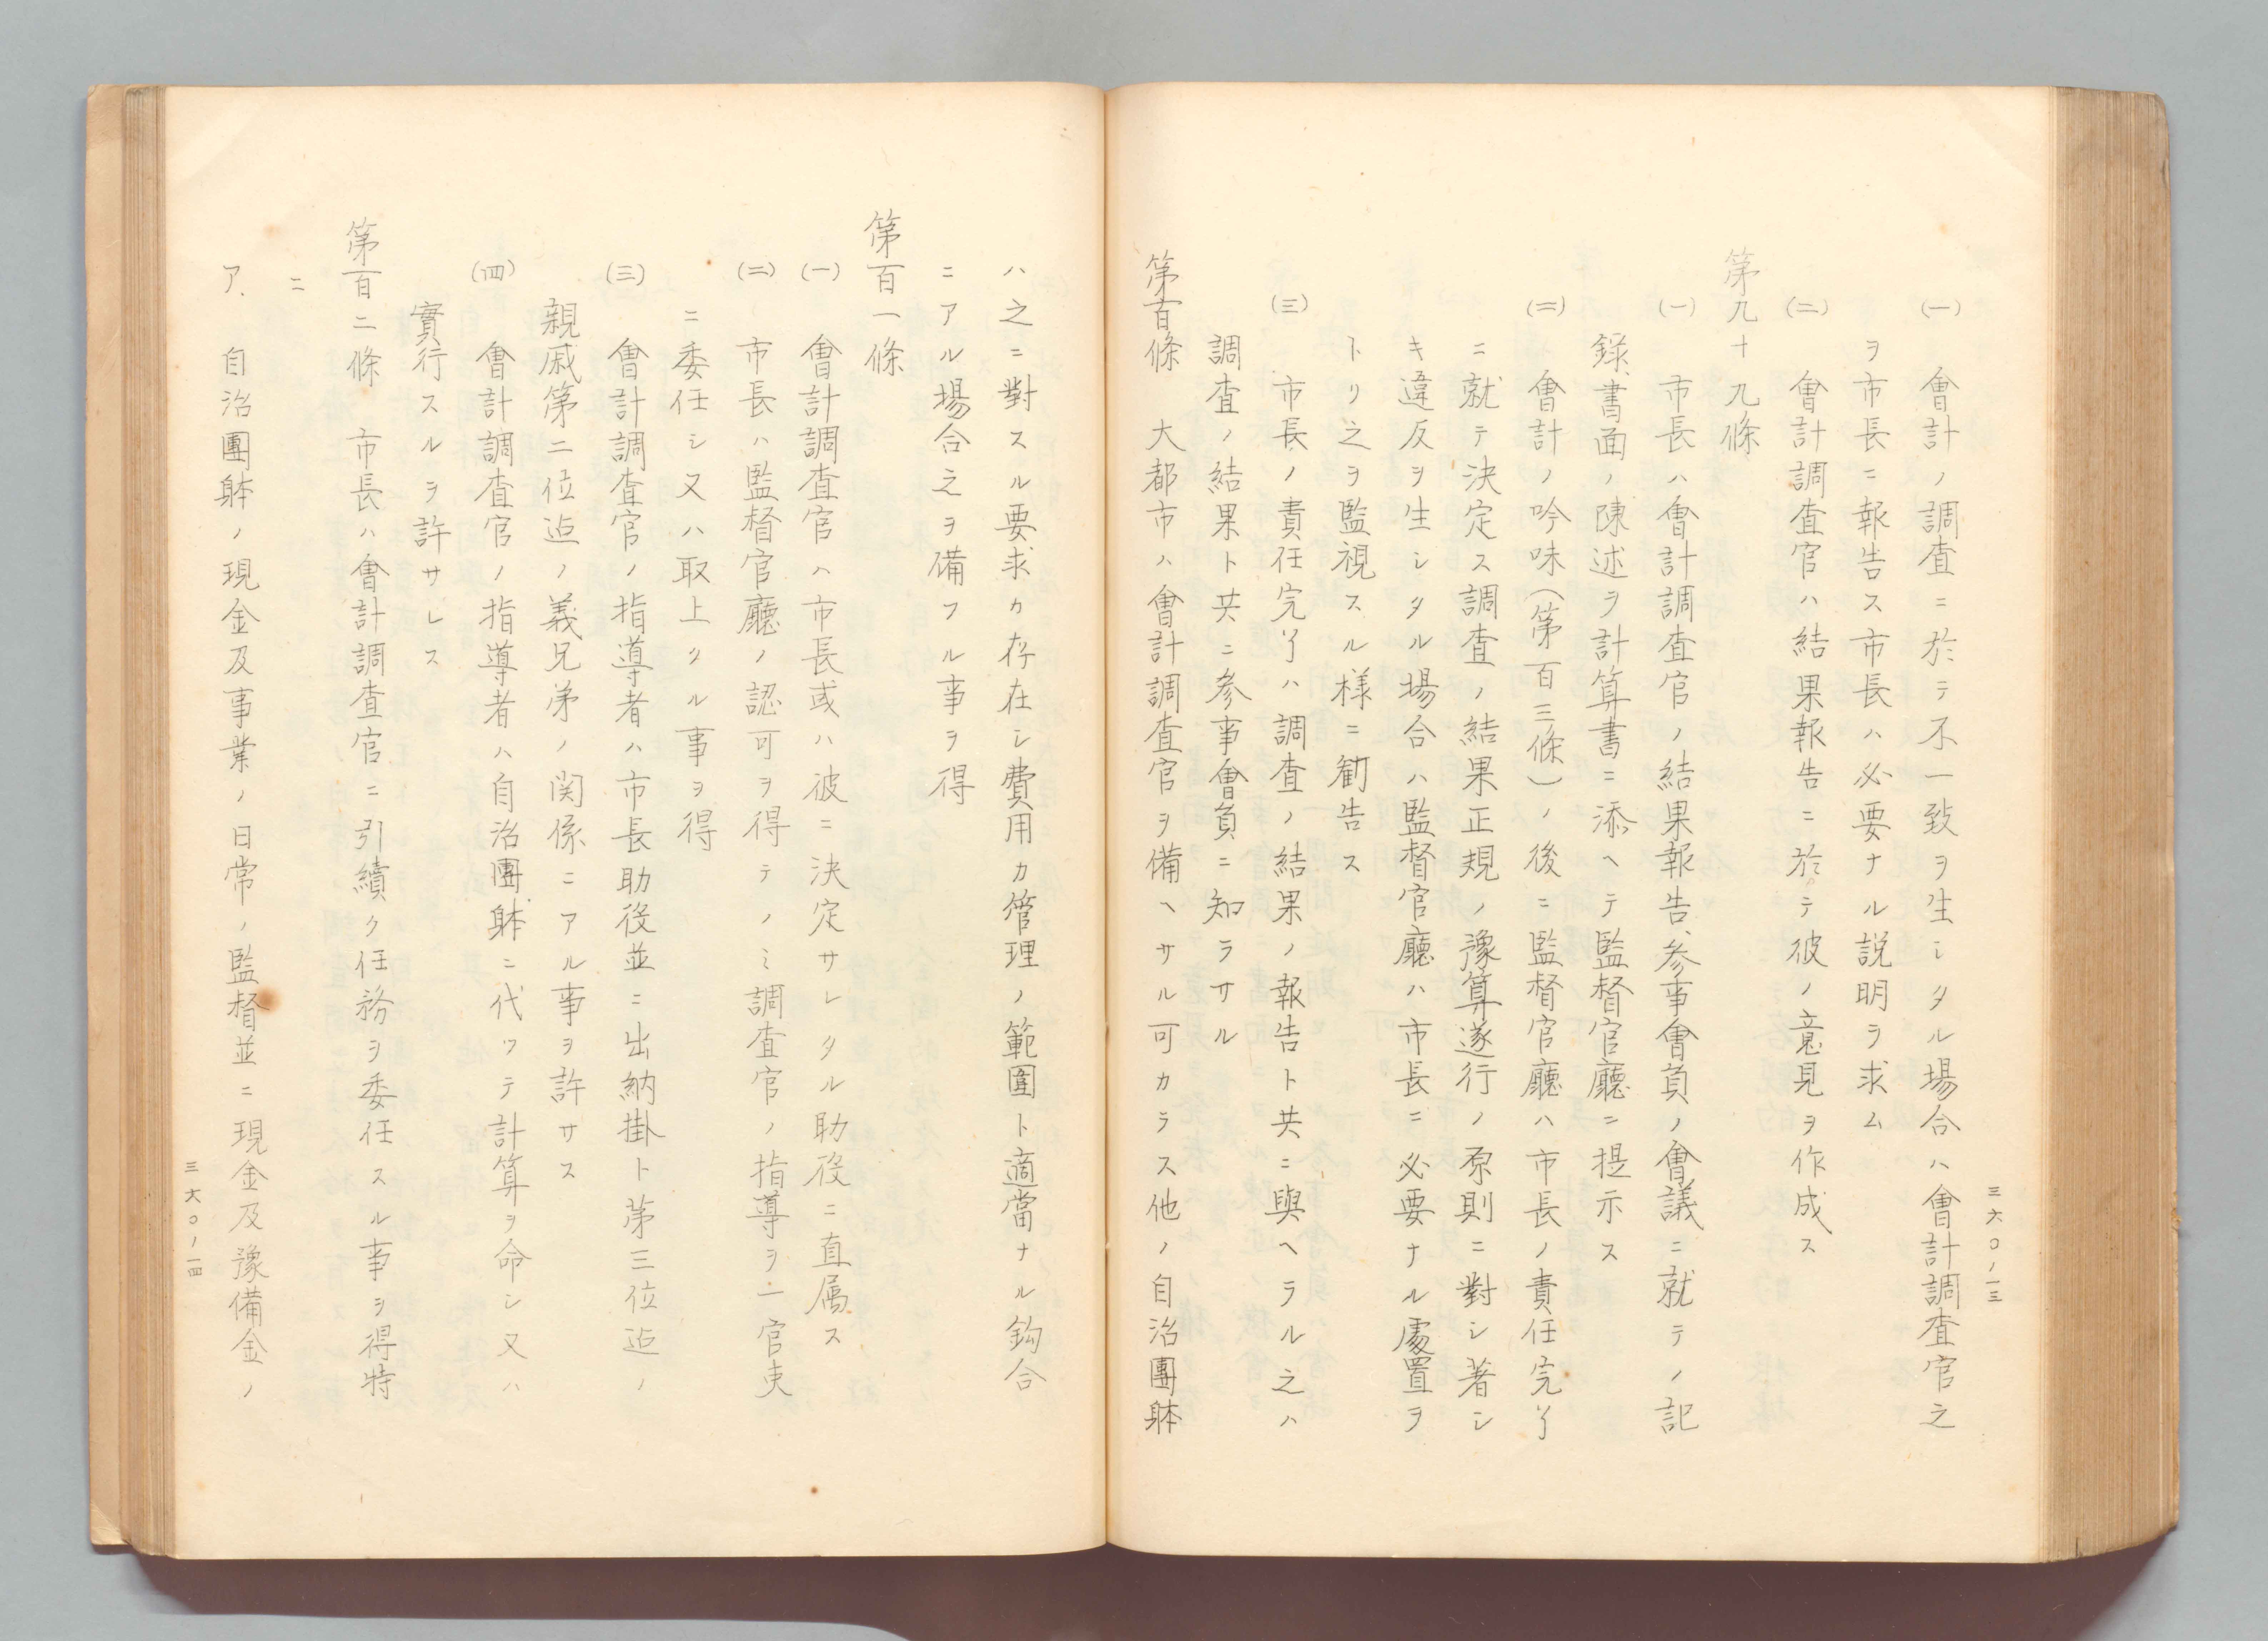 三六〇ノ一三
(一) 會計ノ調査ニ於テ不一致ヲ生シタル場合ハ會計調査官之
ヲ市長ニ報告ス市長ハ必要ナル説明ヲ求ム
(二) 會計調査官ハ結果報告ニ於テ彼ノ意見ヲ作成ス
第九十九條
(一) 市長ハ會計調査官ノ結果報告、参事會員ノ會議ニ就テノ記
錄、書面ノ陳述ヲ計算書ニ添ヘテ監督官廳ニ提示ス
(二) 會計ノ吟味(第百三條)ノ後ニ監督官廳ハ市長ノ責任完了
ニ就テ決定ス調査ノ結果正規ノ豫算遂行ノ原則ニ對シ著シ
キ違反ヲ生シタル場合ハ監督官廳ハ市長ニ必要ナル處置ヲ
トリ之ヲ監視スル様ニ勧告ス
(三) 市長ノ責任完了ハ調査ノ結果ノ報告ト共ニ與ヘラル之ハ
調査ノ結果ト共ニ参事會員ニ知ラサル
第百條 大都市ハ會計調査官ヲ備ヘサル可カラス他ノ自治團躰
ハ之ニ對スル要求カ存在シ費用カ管理ノ範圍ト適當ナル鈎合
ニアル場合之ヲ備フル事ヲ得
第百一條
(一) 會計調査官ハ市長或ハ彼ニ決定サレタル助役ニ直属ス
(二) 市長ハ監督官廳ノ認可ヲ得テノミ調査官ノ指導ヲ一官吏
ニ委任シ又ハ取上クル事ヲ得
(三) 會計調査官ノ指導者ハ市長助役並ニ出納掛ト第三位迠ノ
親戚第二位迠ノ義兄弟ノ関係ニアル事ヲ許サス
(四) 會計調査官ノ指導者ハ自治團躰ニ代ツテ計算ヲ命シ又ハ
實行スルヲ許サレス
第百二條 市長ハ會計調査官ニ引續ク任務ヲ委任スル事ヲ得特
ニ
ア、自治團躰ノ現金及事業ノ日常ノ監督並ニ現金及豫備金ノ
三六〇ノ一四